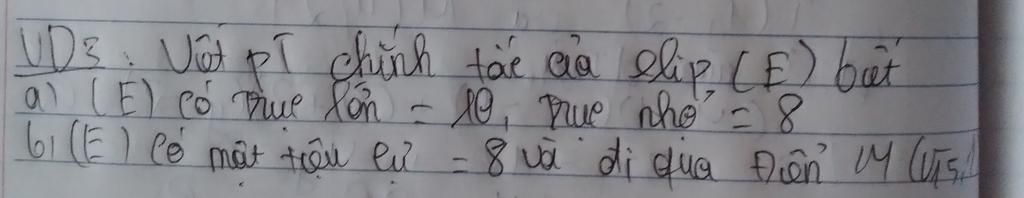 VD3: Viết PT chính tắc của elip (E) biết
a) (E) có trục lớn = 10, trục nhỏ = 8
b) (E) có một tiêu cự = 8 và đi qua điển M (√15,